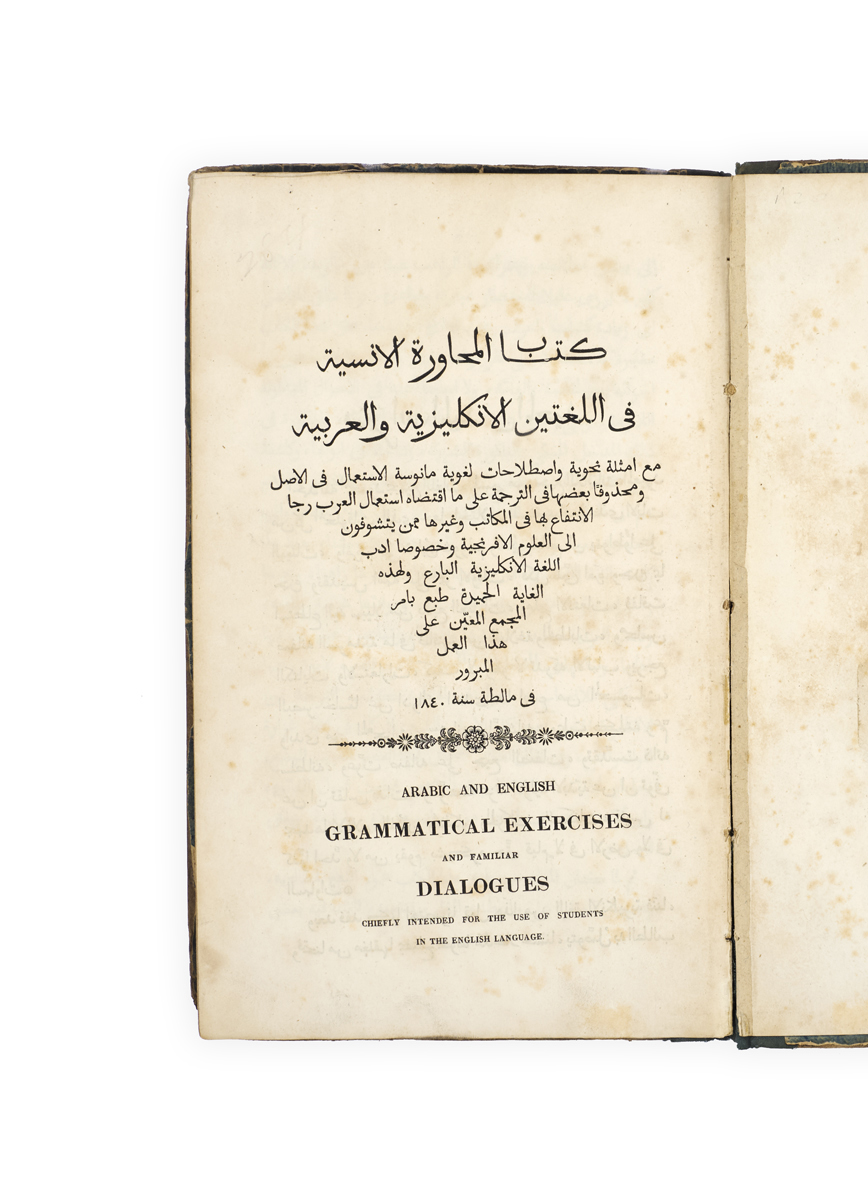 كتاب المحاورة الانسية
فى اللغتين الانكليزية والعربية
مع امثلة نحوية واصطلاحات لغوية مانوسة الاستعمال فى الاصل
ومحذوفا بعضها فى الترجمة على ما اقتضاه استعمال العرب رجا
الانتفاع بها فى المكاتب وغيرها ممن يتشوفون
الى العلوم الافرنجية وخصوصا ادب
اللغة الانكليزية البارع ولهذه
الغاية الحميدة طبع بامر
المجمع المعيّن على
هذا العمل
المبرور
فى مالطة سنة ١٨٤٠
ARABIC AND ENGLISH
GRAMMATICAL EXERCISES
AND FAMILIAR
DIALOGUES
CHIEFLY INTENDED FOR THE USE OF STUDENTS
IN THE ENGLISH LANGUAGE.